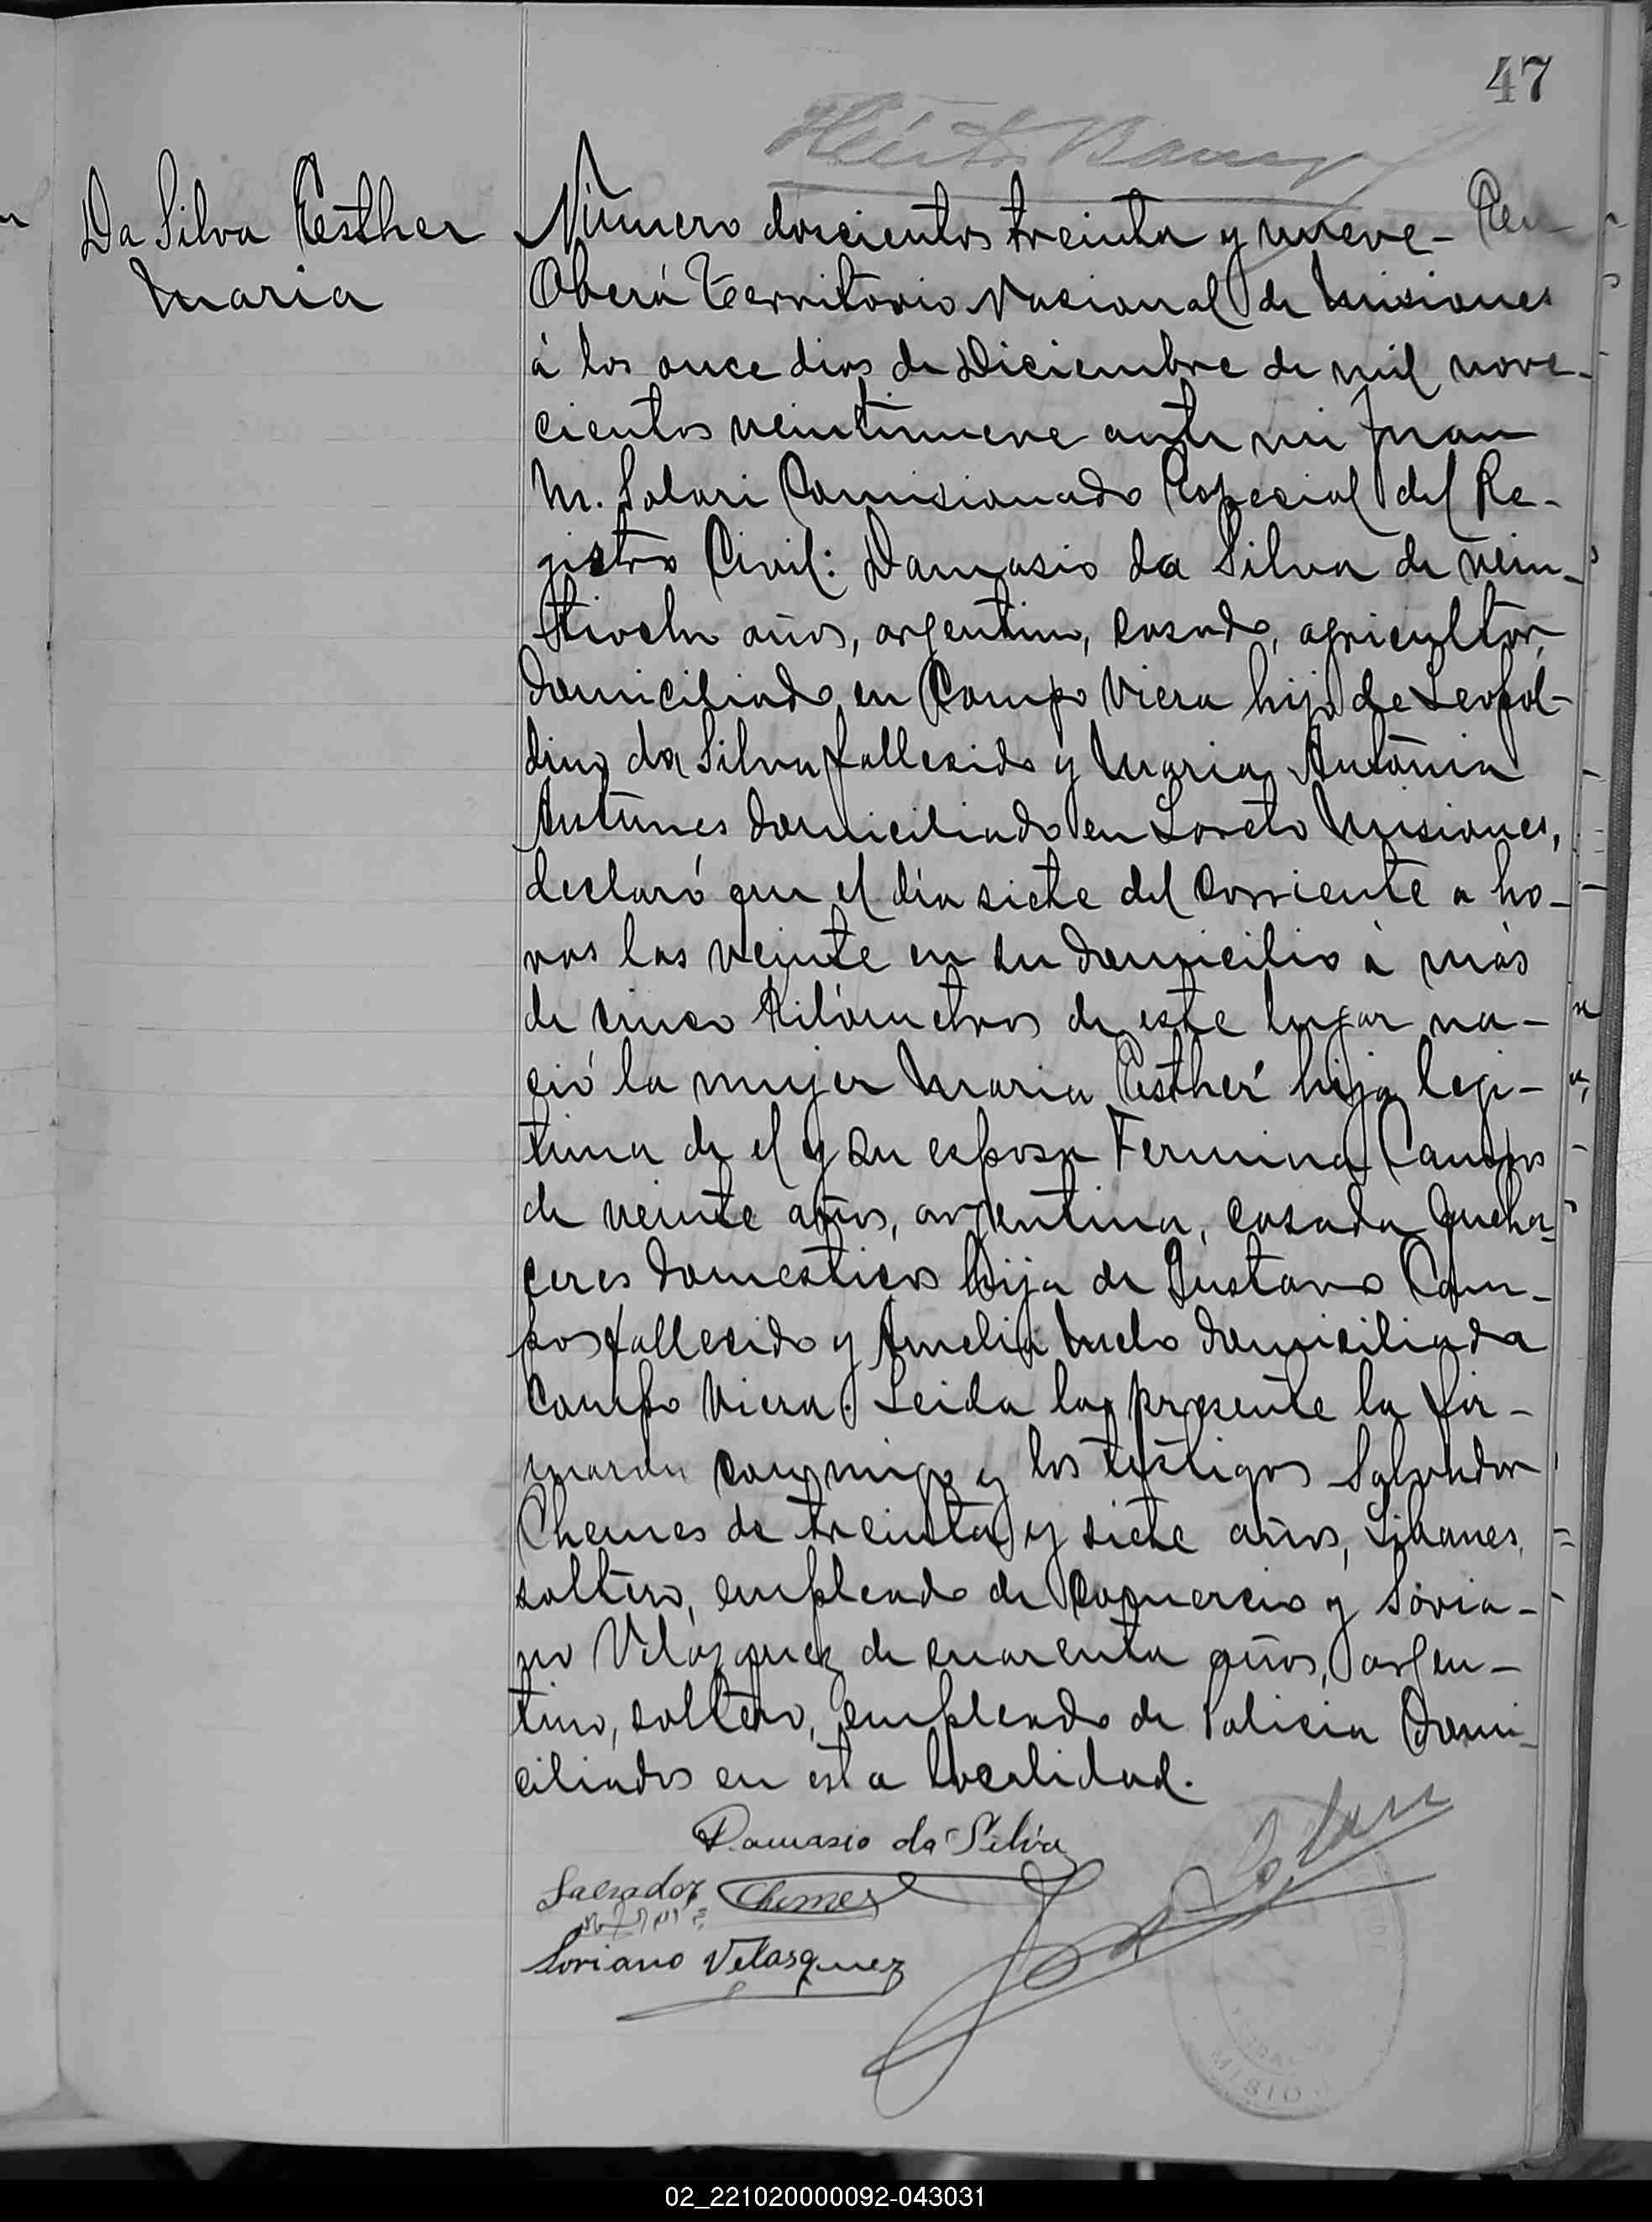 47
Da Silva Esther
Maria
Número doscientos treinta y nueve- En
Oberá Territorio Nacional de Misiones
á los once dias de Diciembre de mil nove-
cientos veintinueve ante mi Juan
M. Solari Comisionado Especial del Re-
gistro Civil: Damasio da Silva de vein-
tiocho años, argentino, casado, agricultor,
domiciliado en Campo Viera hijo de Leopol-
dino da Silva fallecido y Maria Antonia
Antunes domiciliado en Loreto Misiones,
declaró que el día siete del corriente a ho-
ras las veinte en su domicilio á más
de cinco Kilómetros de este lugar na-
ció la mujer Maria Esther hija legi-
tima de el y su esposa Fermina Campos
de veinte años, argentina, casada queha-
ceres domesticos hija de Gustavo Cam-
pos fallecido y Amelia Melo domiciliada
Campo Viera. Leida la presente la fir-
maron conmigo y los testigos Salvador
Chemes de treinta y siete años, Libanes,
soltero, empleado de comercio y Soria-
no Velázquez de cuarenta años, argen-
tino, soltero, empleado de Policia Domi-
ciliados en esta localidad.
Damasio da Silva
Salvador Chemes
Soriano Velasquez
Solari
MISIO
02_221020000092-043031